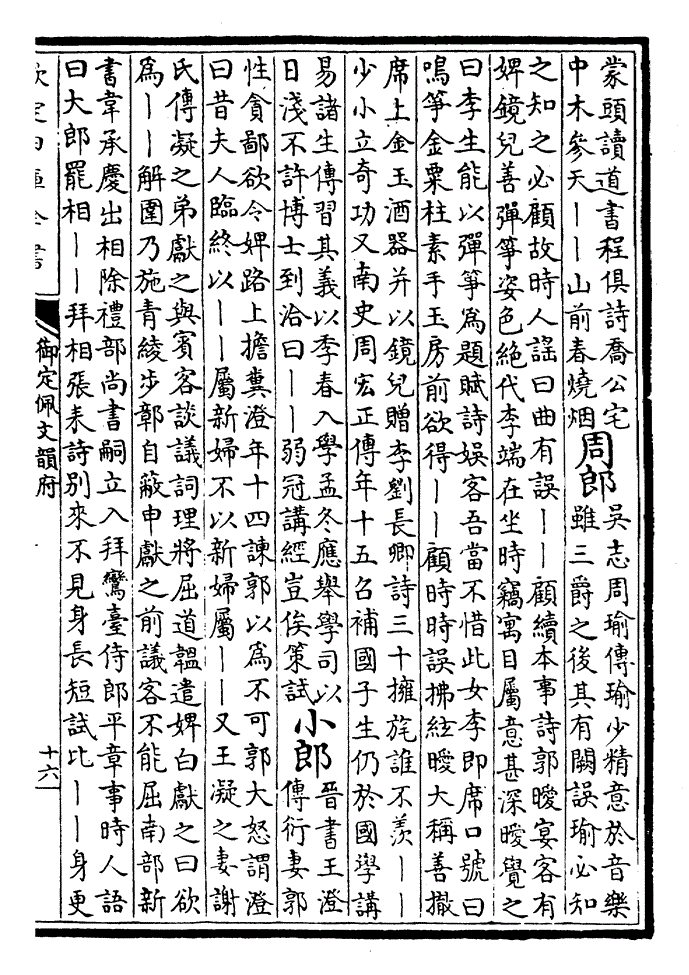 蒙頭讀道書程俱詩喬公宅
中木參天——山前春燒烟
周郎
吳志周瑜傳瑜少精意於音樂
雖三爵之後其有闕誤瑜必知
之知之必顧故時人謡曰曲有誤——顧續本事詩郭曖宴客有
婢鏡兒善彈箏姿色絕代李端在坐時竊寓目屬意甚深曖覺之
曰李生能以彈箏為題賦詩娯客吾當不惜此女李即席口號曰
鳴箏金粟柱素手玉房前欲得——顧時時誤拂絃曖大稱善撤
席上金玉酒器并以鏡兒贈李劉長卿詩三十擁旄誰不羨——
少小立奇功又南史周宏正傳年十五召補國子生仍於國學講
易諸生傳習其義以季春入學孟冬應舉學司以
日淺不許博士到洽曰——弱冠講經豈俟策試
小郎
晉書王澄
傳衍妻郭
性貪鄙欲令婢路上擔糞澄年十四諫郭以為不可郭大怒謂澄
曰昔夫人臨終以——屬新婦不以新婦屬——又王凝之妻謝
氏傳凝之弟獻之與賓客談議詞理將屈道韞遣婢白獻之曰欲
為——解圍乃施青綾步鄣自蔽申獻之前議客不能屈南部新
書韋承慶出相除禮部尚書嗣立入拜鸞臺侍郎平章事時人語
曰大郎罷相——拜相張耒詩别來不見身長短試比——身更
欽定四庫全書
御定佩文韻府
十六